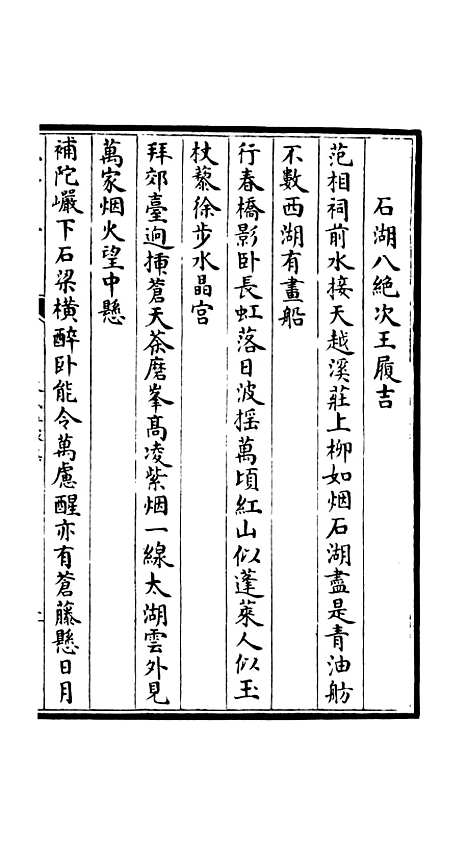 石湖八絶次王履吉
范相祠前水接天越溪莊上柳如烟石湖盡是青油舫
不數西湖有畫船
行春橋影卧長虹落日波摇萬頃紅山似蓬萊人似玉
杖藜徐步水晶宫
拜郊臺逈挿蒼天茶磨峯髙凌紫烟一線太湖雲外見
萬家烟火望中懸
補陀巖下石梁横醉卧能令萬慮醒亦有蒼藤懸日月